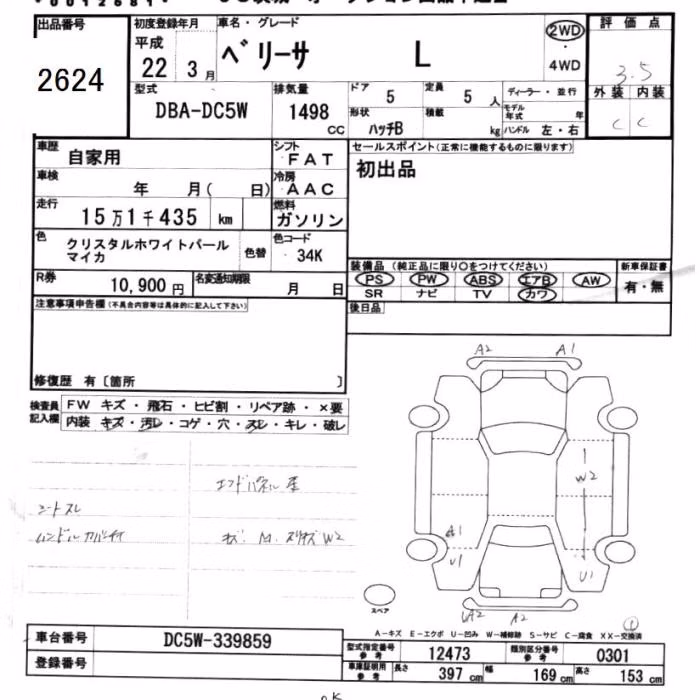 0012681
出品番号
2624
初度登録年月
平成
22 3月
車名・グレード
ベリーサ L
2WD
・
4WD
評価点
3.5
外装 内装
C C
型式
DBA-DC5W
排気量
1498
CC
ドア
5
定員
5 人
形状
ハッチB
積載
kg
ディーラー・並行
モデル年式 年
ハンドル 左・右
車歴
自家用
シフト
FAT
車検
年 月( 日)
冷房
AAC
走行
15万1千435 km
燃料
ガソリン
色
クリスタルホワイトパール
マイカ
色替
色コード
34K
R券
10,900円
名変通知期限
月 日
セールスポイント(正常に機能するものに限ります)
初出品
装備品 (純正品に限り○をつけてください)
PS PW ABS エアB AW
SR ナビ TV カワ
新車保証書
有・無
後日品
注意事項申告欄(不具合内容等は具体的に記入して下さい)
修復歴 有〔箇所 〕
検査員
記入欄
FW キズ・飛石・ヒビ割・リペア跡・×要
内装 キズ・汚レ・コゲ・穴・スレ・キレ・破レ
シートスレ
A2 A1
W2
A1
U1
U1
A2
スペア
A-キズ E-エクボ U-凹み W-補修跡 S-サビ C-腐食 XX-交換済
車台番号
DC5W-339859
登録番号
型式指定番号
参考
12473
類別区分番号
参考
0301
車庫証明用
参考
長さ
397 cm
幅
169 cm
高さ
153 cm